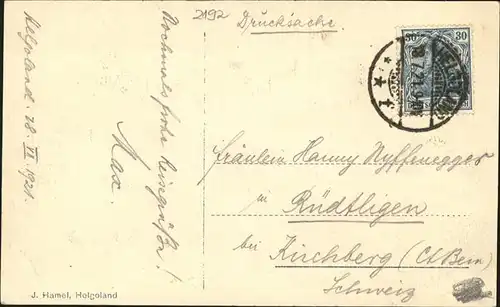 2192
Drucksache
Helgoland 28. VI 1921.
Nochmals frohe Reisegrüße!
Max.
30 30
HELGOLAND
Fräulein Hanny Nyffenegger
in
Rüdtligen
bei Kirchberg (Ct. Bern)
Schweiz
J. Hamel, Helgoland